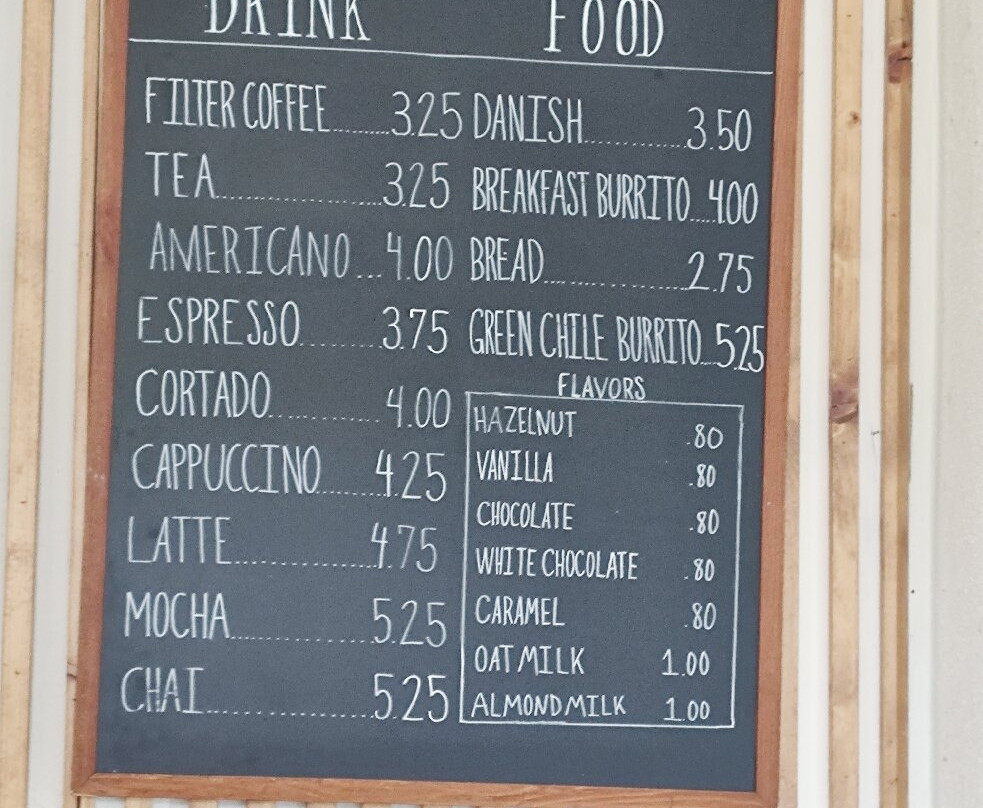 DRINK
FILTER COFFEE.........3.25
TEA....................3.25
AMERICANO...4.00
ESPRESSO.........3.75
CORTADO............4.00
CAPPUCCINO.......4.25
LATTE.................4.75
MOCHA................5.25
CHAI....................5.25
FOOD
DANISH...............3.50
BREAKFAST BURRITO....4.00
BREAD...................2.75
GREEN CHILE BURRITO...5.25
FLAVORS
HAZELNUT .80
VANILLA .80
CHOCOLATE .80
WHITE CHOCOLATE .80
CARAMEL .80
OAT MILK 1.00
ALMOND MILK 1.00